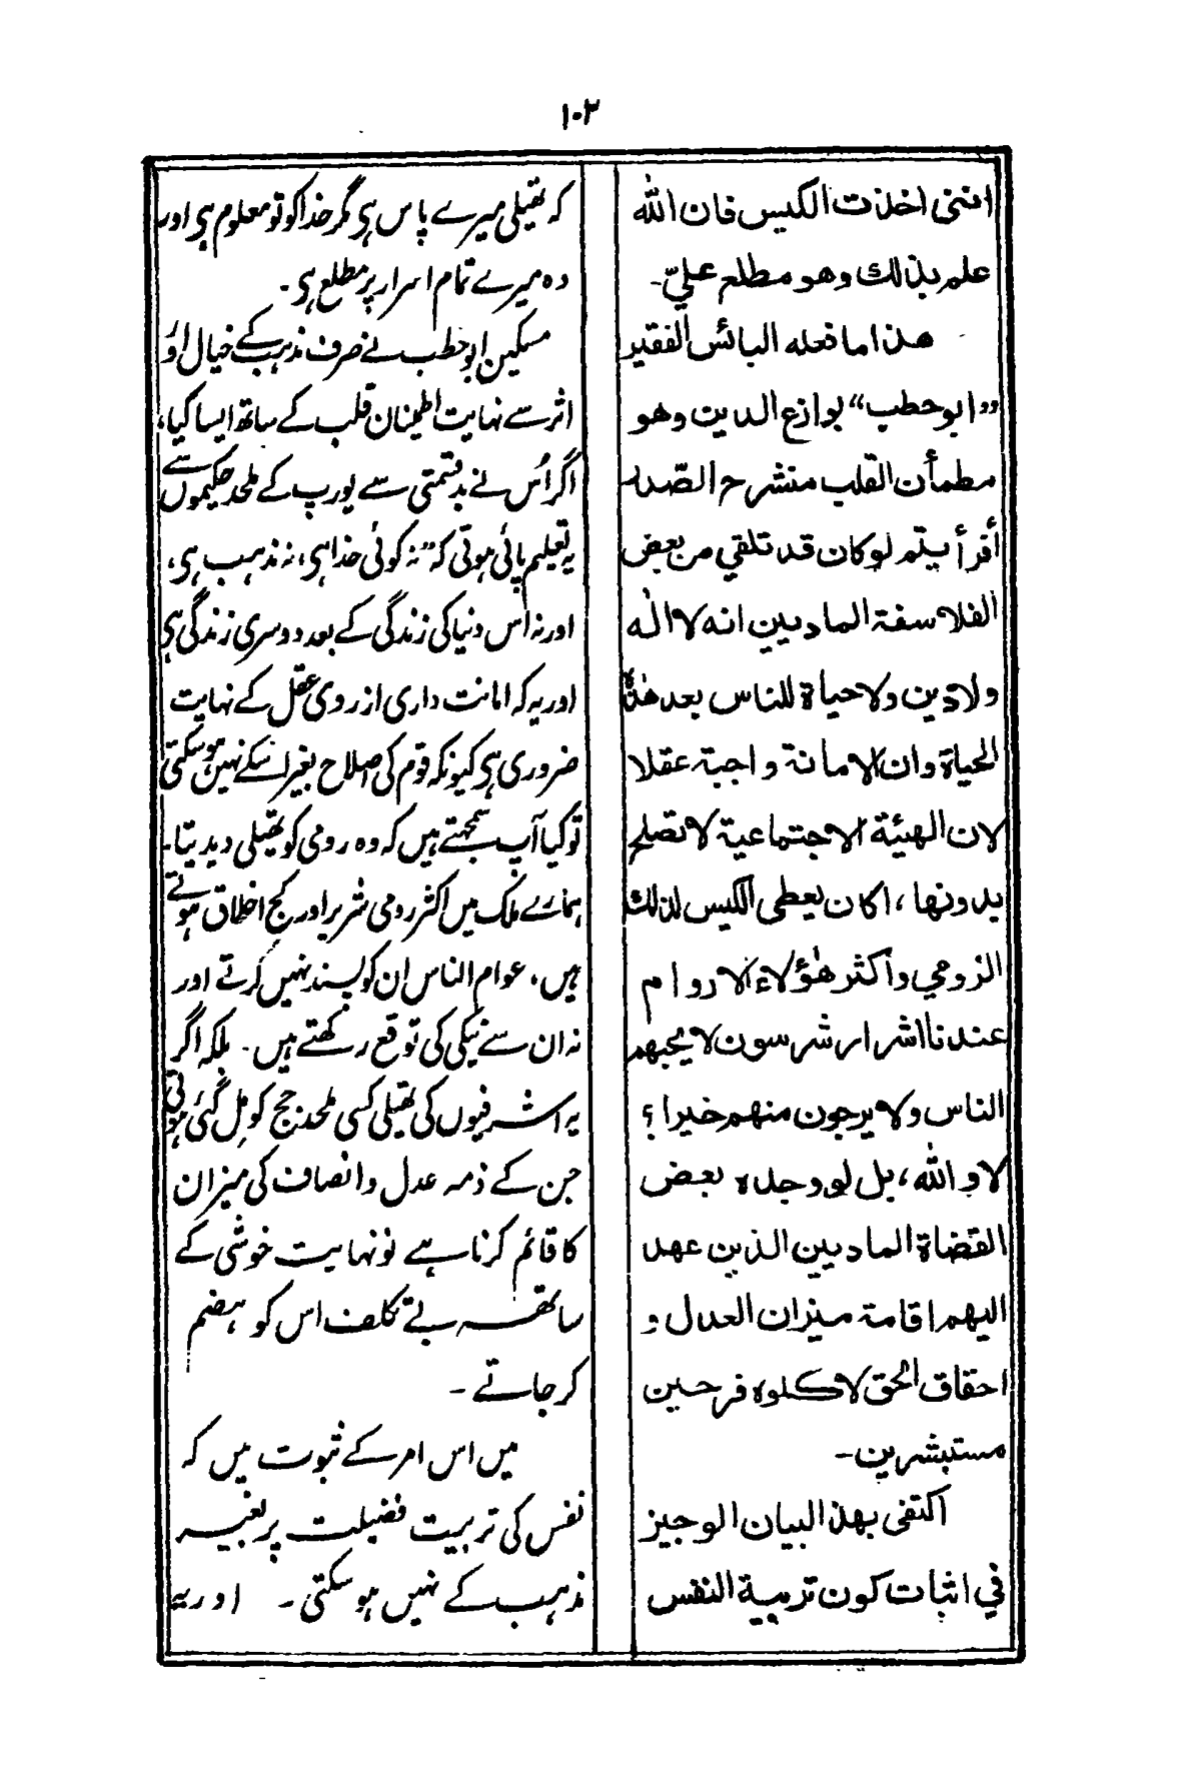 ١٠٣
اننی اخذت الکیس فان اللّٰه
علم بذالك وهو مطلع علیّ۔
هذا ما فعله البائس الفقیر
”ابو حطب“ بوازع الدین وهو
مطمأن القلب منشرح الصّدر
أفرأیتم لو کان قد تلقي من بعض
الفلاسفة المادیین انه لا اله
ولا دین ولا حیاة للناس بعد هٰذة
الحیاة وان الامانة واجبة عقلا
لان الهیئة الاجتماعیة لا تصلح
بدونها، اکان یعطی الکیس لذلك
الرومي وأکثر هٰؤلاء الاروام
عندنا اشرار شرسون لا یحبهم
الناس ولا یرجون منهم خیرا؟
لا واللّٰه، بل لو وجده بعض
القضاة المادیین الذین عهد
الیهم اقامة میزان العدل و
احقاق الحق لا کلوه فرحین
مستبشرین۔
اکتفی بهذ البیان الوجیز
في اثبات کون تربیة النفس
کہ تھیلی میرے پاس ہی مگر خدا کو تو معلوم ہی اور
وہ میرے تمام اسرار پر مطلع ہی۔
مسکین ابو حطب نے صرف مذہب کے خیال اور
اثر سے نہایت اطمینان قلب کے ساتھ ایسا کیا،
اگر اُس نے بدقسمتی سے یورپ کے ملحد حکیموں سے
یہ تعلیم پائی ہوتی کہ ”نہ کوئی خدا ہی، نہ مذہب ہی،
اور نہ اس دنیا کی زندگی کے بعد دوسری زندگی ہی
اور یہ کہ امانت داری از روی عقل کے نہایت
ضروری ہی کیونکہ قوم کی اصلاح بغیر اسکے نہیں ہوسکتی
تو کیا آپ سمجہتے ہیں کہ وہ رومی کو تھیلی دیدیتا۔
ہمارے ملک میں اکثر رومی شریر اور کج اخلاق ہوتے
ہیں. عوام الناس ان کو پسند نہیں کرتے اور
نہ ان سے نیکی کی توقع رکھتے ہیں۔ بلکہ اگر
یہ اشرفیوں کی تھیلی کسی ملحد جج کو مل گئی ہوتی
جن کے ذمہ عدل و انصاف کی میزان
کا قائم کرنا ہے تو نہایت خوشی کے
ساتھ بے تکلف اس کو ہضم
کر جاتے۔
میں اس امر کے ثبوت میں کہ
نفس کی تربیت فضیلت پر بغیر
مذہب کے نہیں ہو سکتی۔ اور یہ